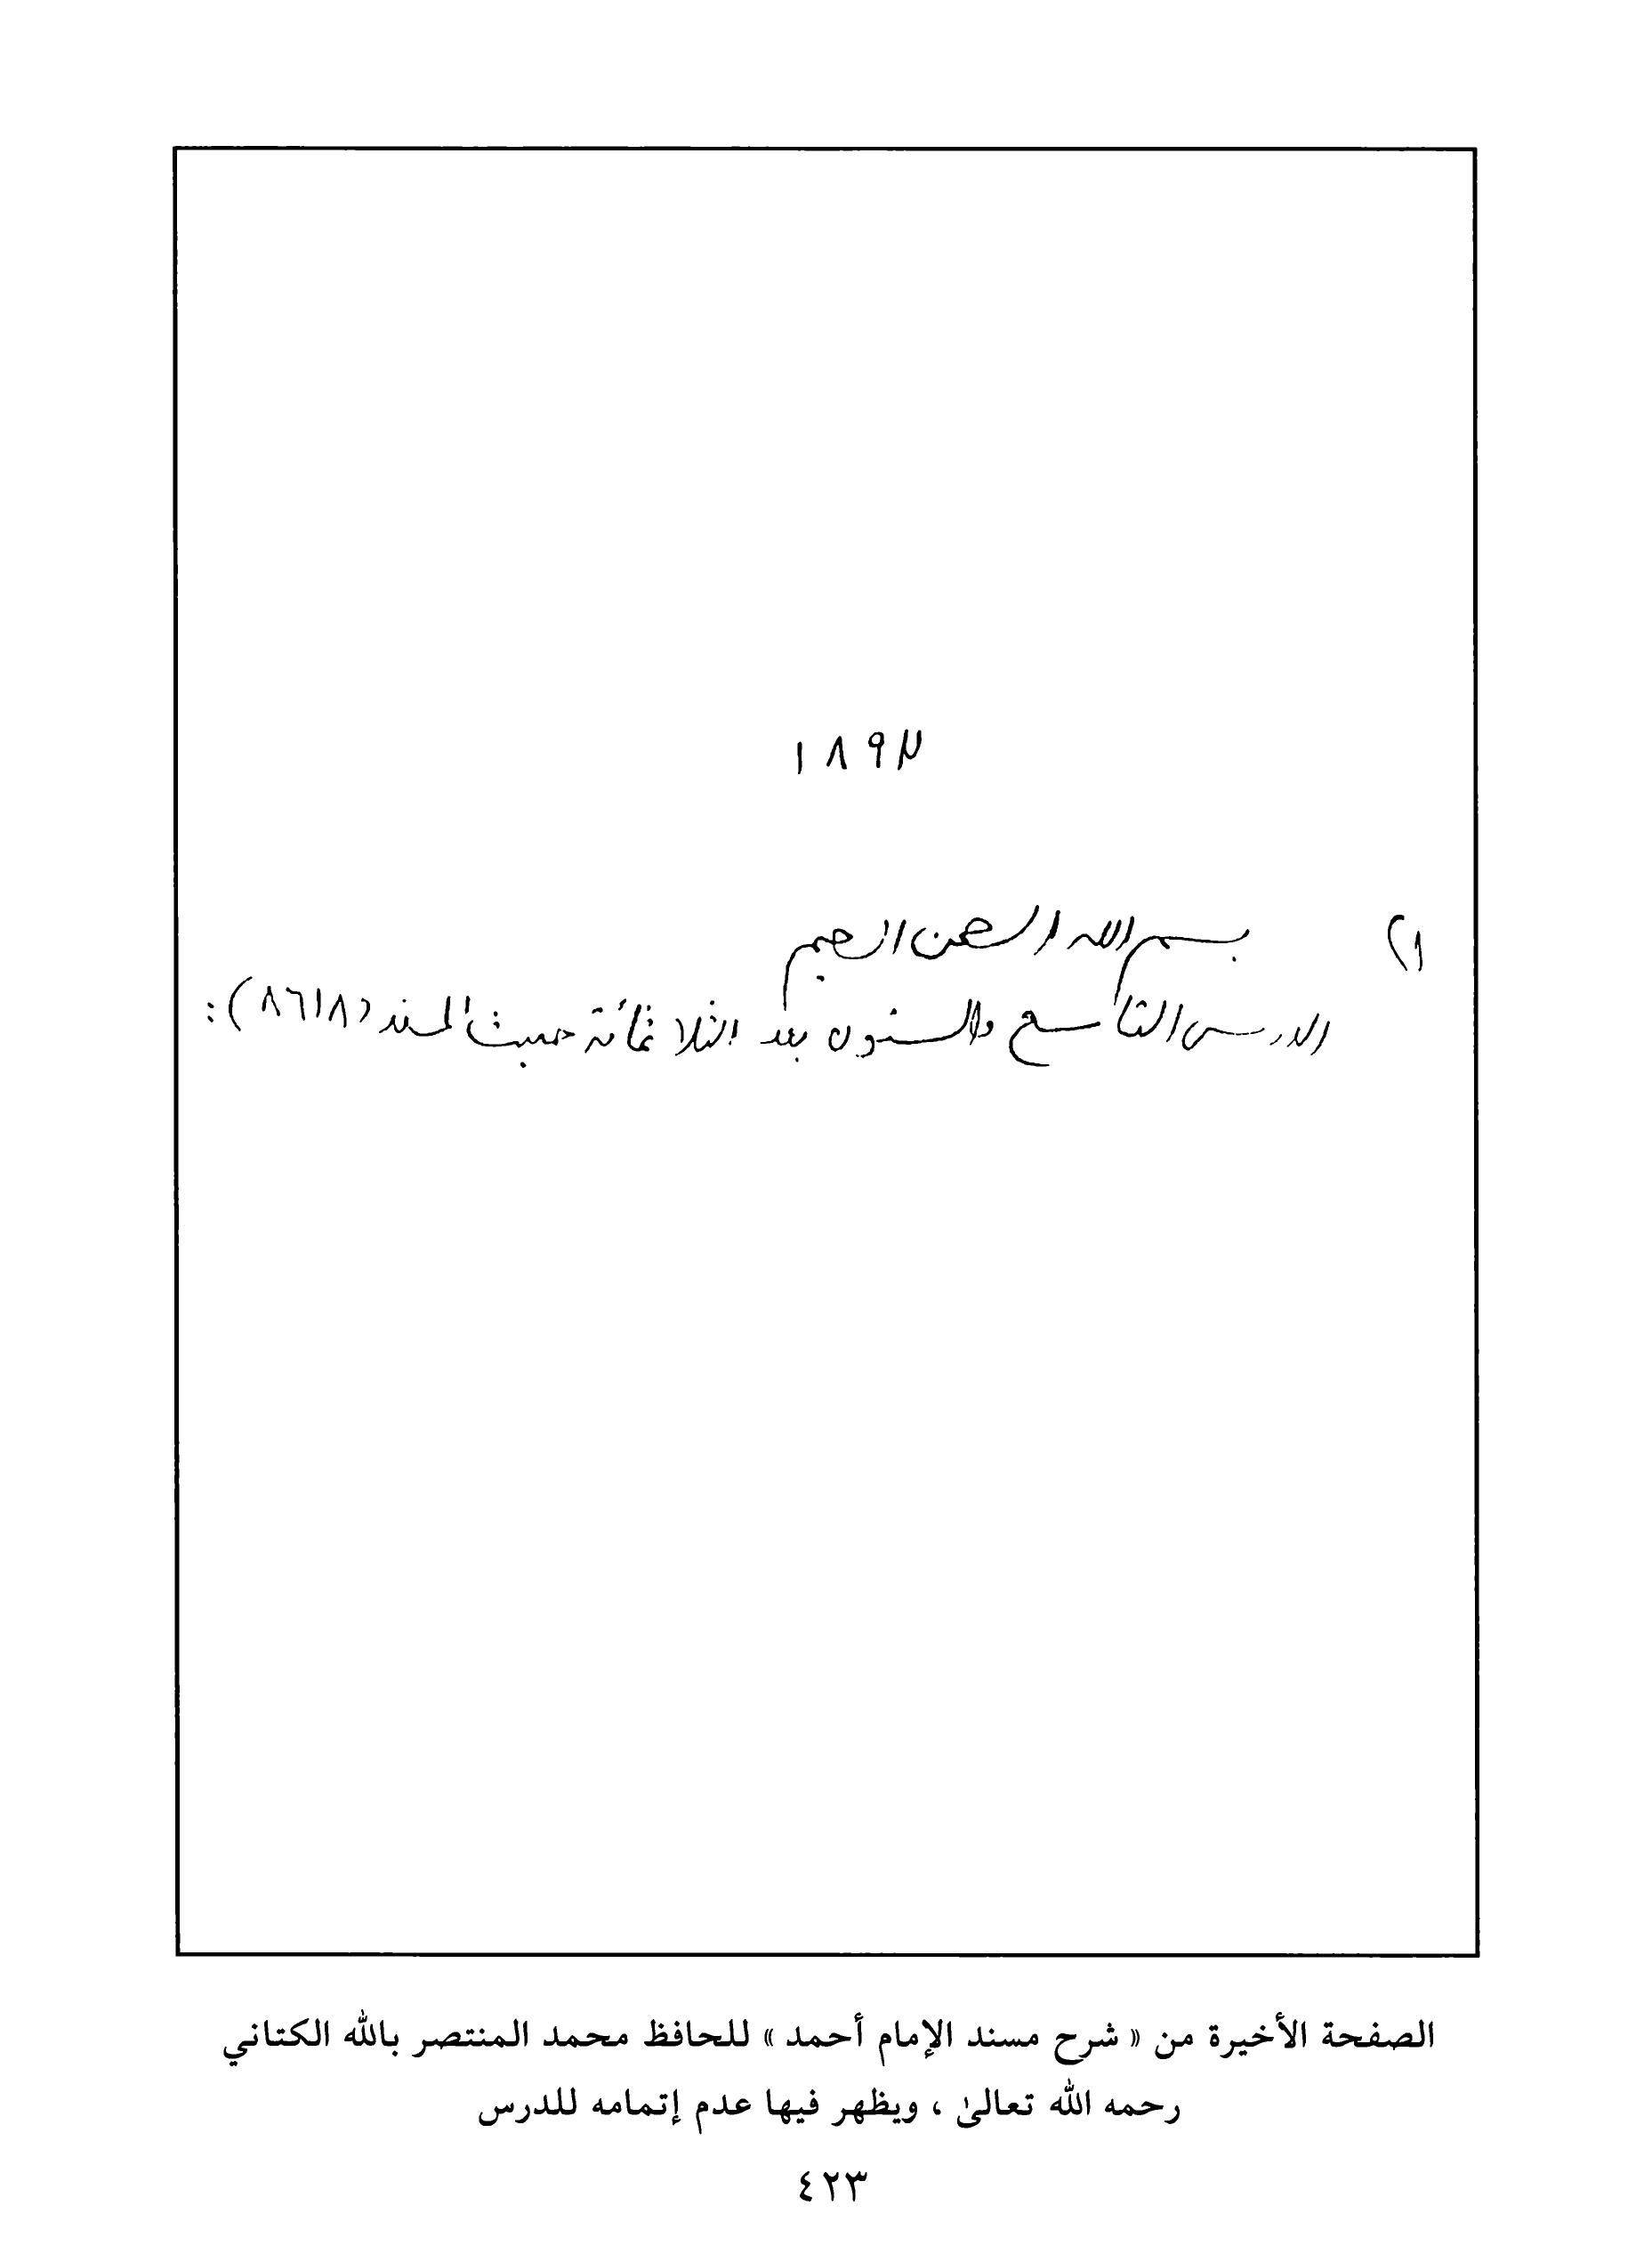 ١٨٩٣
١) بسم الله الرحمن الرحيم
الدرس التاسع والستون بعد الثلاثمائة حديث المسند (٨٦١٨):
الصفحة الأخيرة من « شرح مسند الإمام أحمد » للحافظ محمد المنتصر بالله الكتاني
رحمه الله تعالىٰ ، ويظهر فيها عدم إتمامه للدرس
٤٢٣